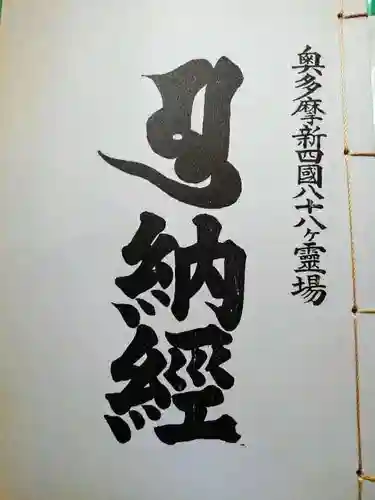 奧多摩新四國八十八ヶ靈場
納經